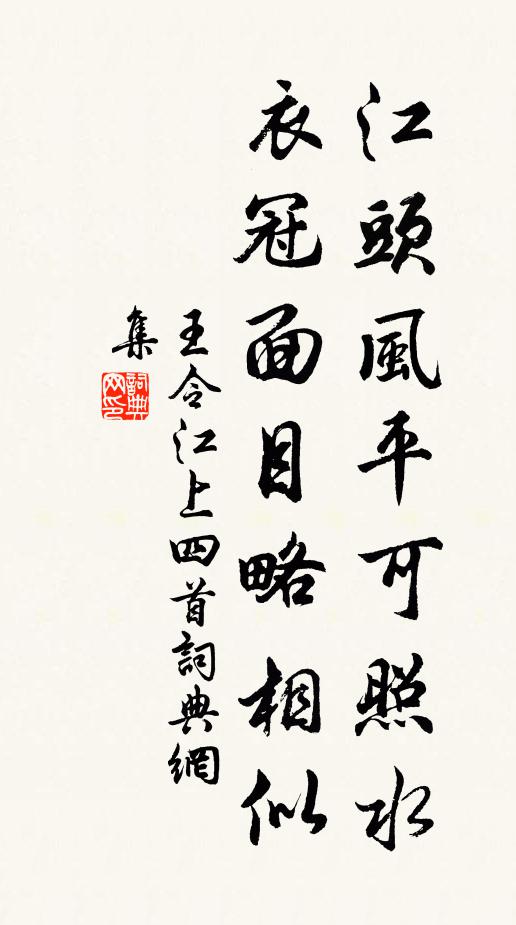 江頭風平可照水
衣冠面目略相似
王令江上四首詞典網
集
詞典网印